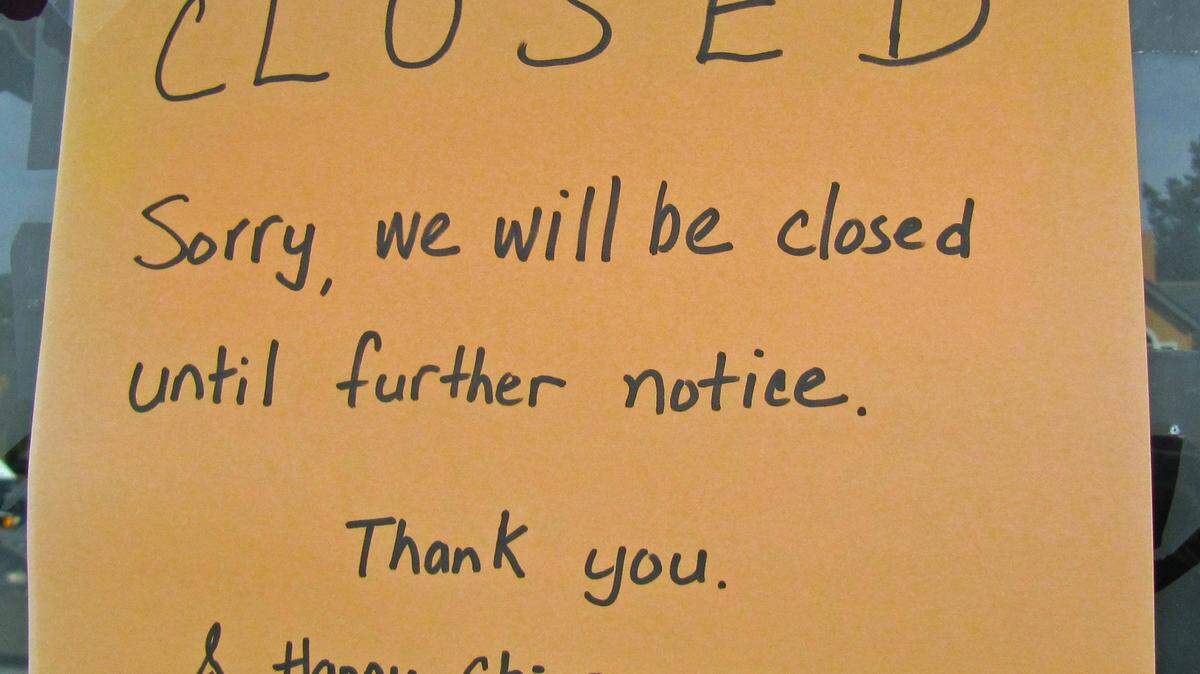 CLOSED
Sorry, we will be closed
until further notice.
Thank you.
& Happy